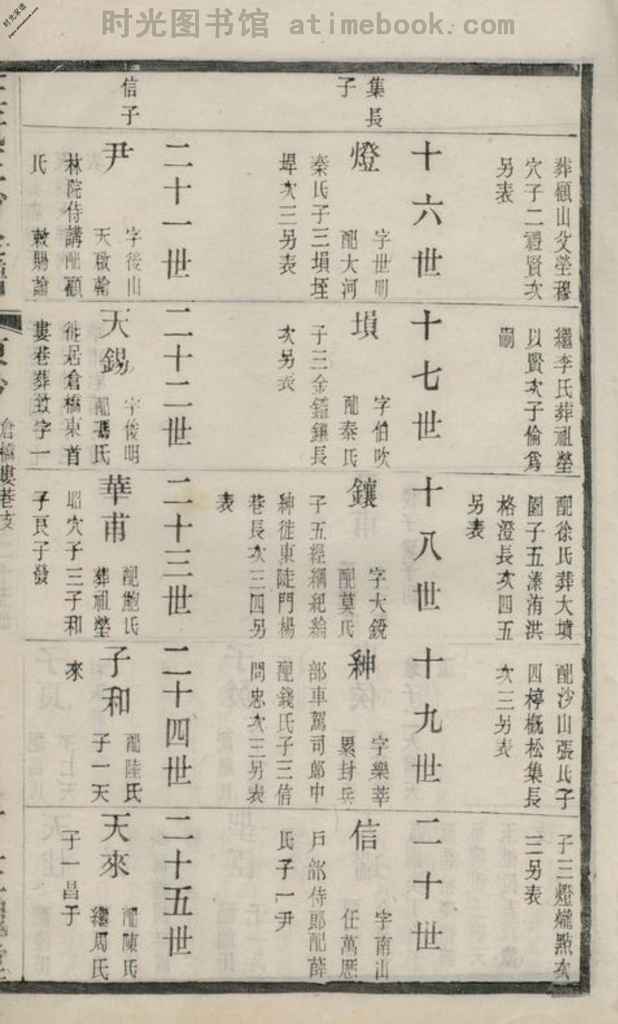 时光图书馆 atimebook.com
葬顧山父塋穆
穴子二禮賢次
另表
繼李氏葬祖塋
以賢次子倫為
嗣
配徐氏葬大墳
園子五溱洧洪
格澄長次四五
另表
配沙山張氏子
四樗概松集長
次三另表
子三燈爐點次
三另表
集長
子
十六世
燈
字世明
配大河
秦氏子三塤垤
垾次三另表
十七世
塤
字伯吹
配秦氏
子三金鐇鑲長
次另表
十八世
鑲
字大鏡
配莫氏
子五經綱紀綸
紳徙東陡門楊
巷長次三四另
表
十九世
紳
字樂莘
累封兵
部車駕司郎中
配錢氏子三信
問忠次三另表
二十世
信
字南山
任萬厯
戶部侍郎配薛
氏子一尹
信子
二十一世
尹
字後山
天啟翰
林院侍講配顧
氏
敕賜諭
二十二世
天錫
字俊明
配馮氏
徙居倉橋東首
婁巷葬致字一
二十三世
華甫
配鮑氏
葬祖塋
昭穴子三子和
子艮子發
二十四世
子和
配陸氏
子一天
來
二十五世
天來
配陳氏
繼周氏
子一昌于
倉橋婁巷支